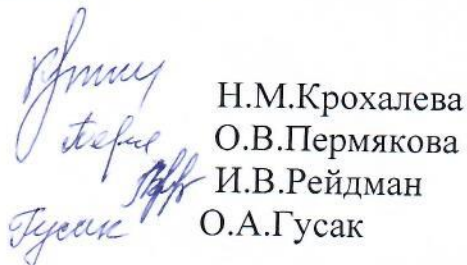 Н.М.Крохалева
О.В.Пермякова
И.В.Рейдман
Гусак О.А.Гусак